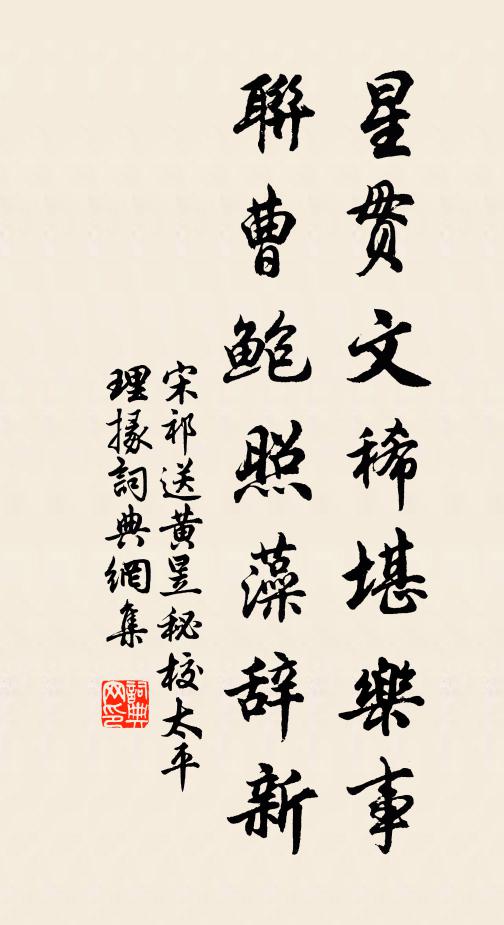 星貫文稀堪樂事
聯曹鲍照藻辞新
宋祁送黃昱秘校太平
理掾詞典網集
詞典
网印